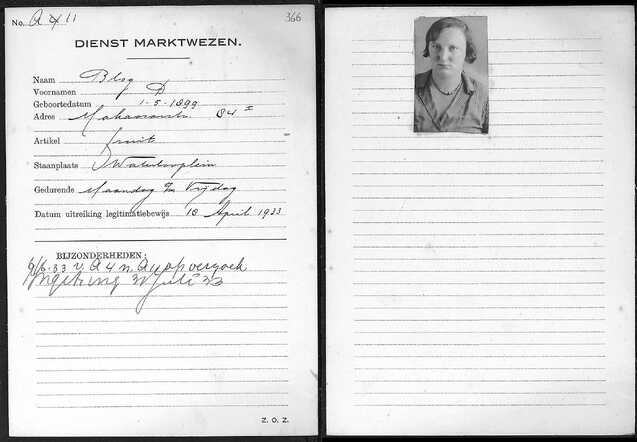 No. A 11
366
DIENST MARKTWEZEN.
Naam Blog
Voornamen D
Geboortedatum 1-5-1899
Adres 84 I
Artikel fruit
Staanplaats Waterlooplein
Gedurende Maandag t/m Vrijdag
Datum uitreiking legitimatiebewijs 10 April 1933
BIJZONDERHEDEN:
9/6-33 v. A 4 n A 11 op verzoek
31 Juli 33
Z. O. Z.